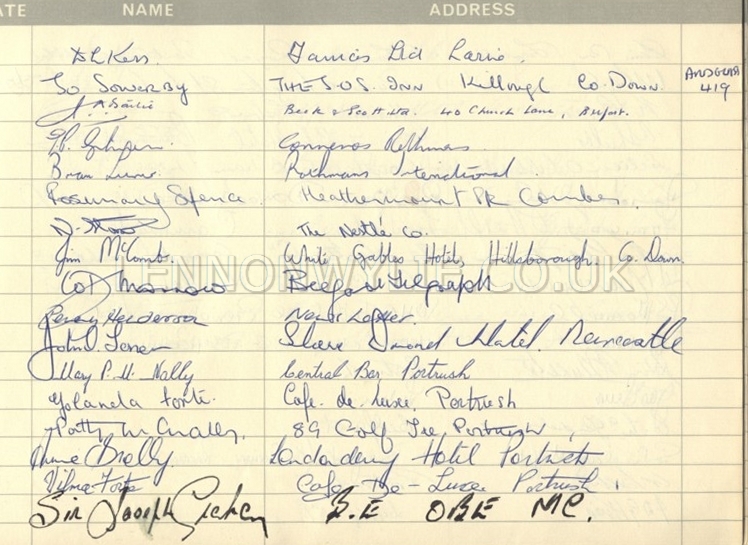 ATE NAME ADDRESS
Francis
Jo Sowerby THE S.O.S. INN Killough Co. Down. ANDSGUA 419
Beck & Scott Ltd. 40 Church Lane, Belfast.
Brian Rothmans International
Rosemary Spence Heathermount Pk Comber.
The Nestlé Co.
Jim McComb. White Gables Hotel, Hillsborough, Co. Down.
Morrow Belfast Telegraph
Henderson News Letter.
John Slieve Donard Hotel Newcastle
Mary P. McNally Central Bar Portrush
Yolanda Forte. Cafe de Luxe, Portrush
Patty McNally, 89 Golf Tce Portrush,
Brolly Londonderry Hotel Portrush
Vilma Forte Cafe-De-Luxe Portrush.
Sir Joseph B.E OBE MC.
LENNORWYJE.CO.UK